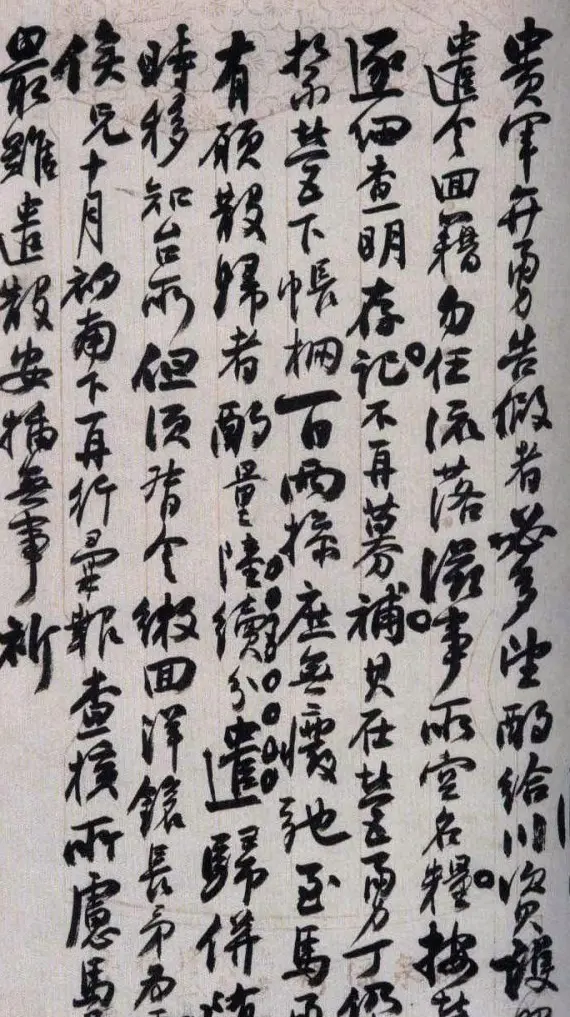 貴軍弁勇告假者必多望酌給川資護
遣令回籍勿任流落滋事所空名糧按
逐細查明存記不再募補其在營勇丁仍
紮營下帳棚一日兩操庶無懈弛至馬
有願散歸者酌量陸續分遣歸併
時移知台所但須督令繳回洋鎗長矛
俟兄十月初南下再行彙報查核所慮馬
最難遣散安插無事祈